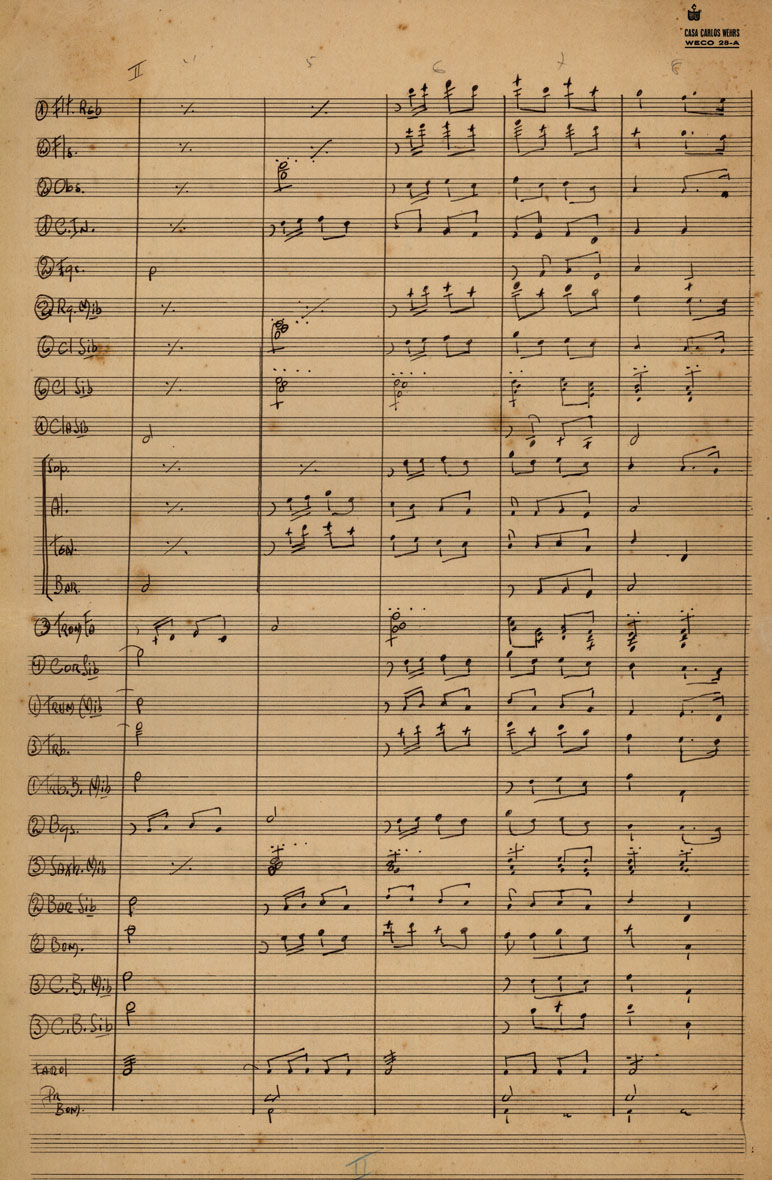 CASA CARLOS WEHRS
WECO 28-A
II 5 6 7 8
① Flt. Reb
② Fls.
② Obs.
① C.In.
② Fgs.
② Rq. Mib
⑥ Cl Sib
⑥ Cl Sib
① Cla Sib
Sop.
Al.
Ten.
Bar
③ Trom Fa
④ Cor Sib
① Trom Mib
③ Trb.
① Trb. B. Mib
② Bgs.
③ Saxh. Mib
② Bar Sib
② Bom.
③ C.B. Mib
③ C.B. Sib
tarol
Pr
Bom.
II